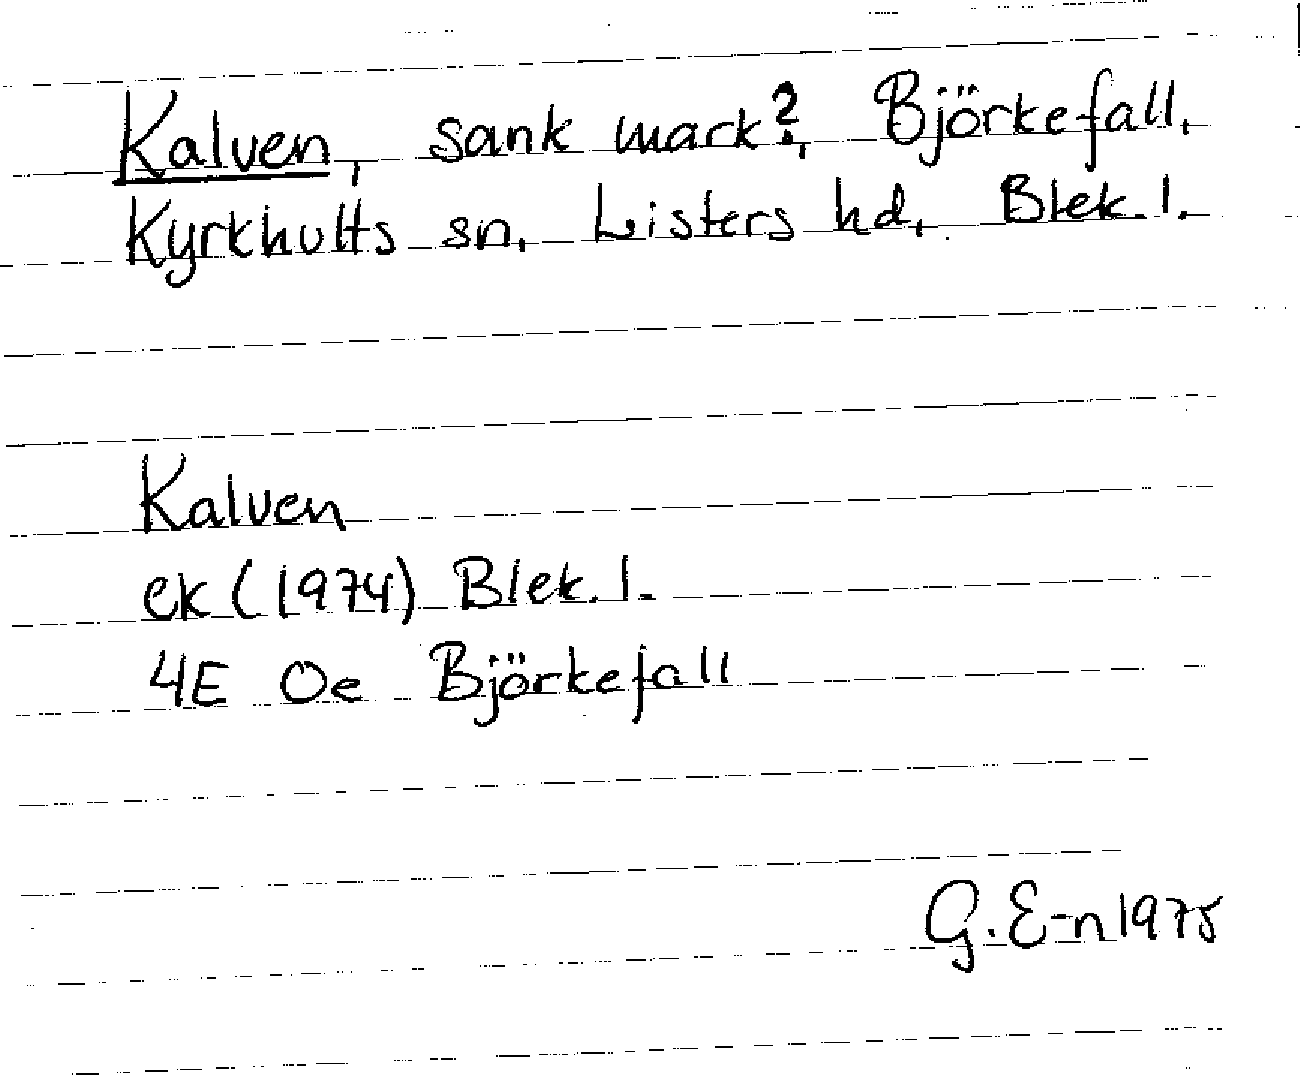 Kalven, sank mark?, Björkefall,
Kyrkhults sn, Listers hd, Blek. l.
Kalven
ek (1974) Blek. l.
4E Oe Björkefall
G. E-n 1975